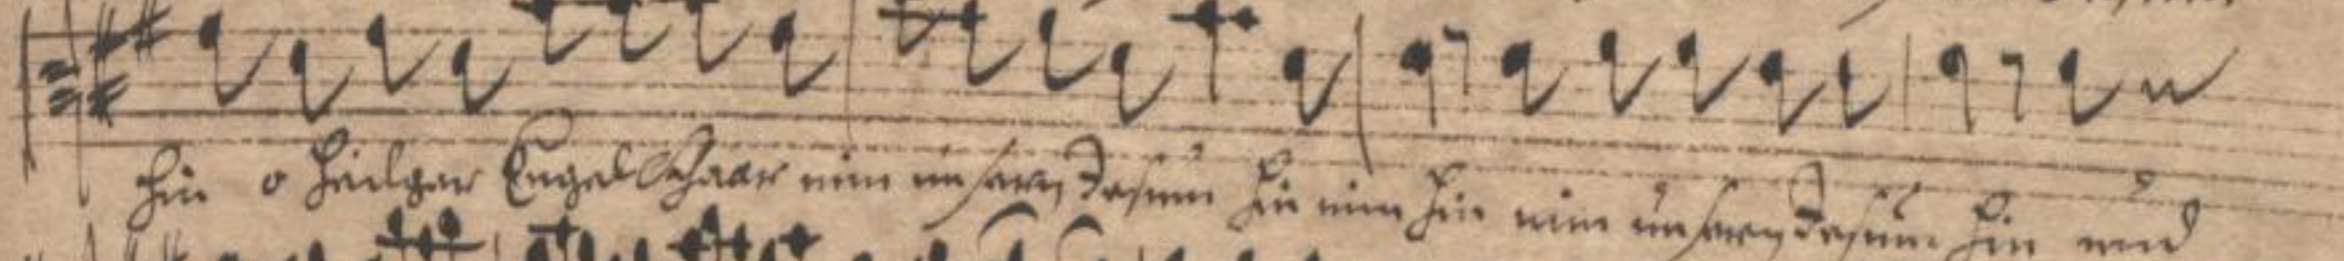 hin o heilger Engel Schaar nim unsern Jesum hin nim hin nim unsern Jesum hin und